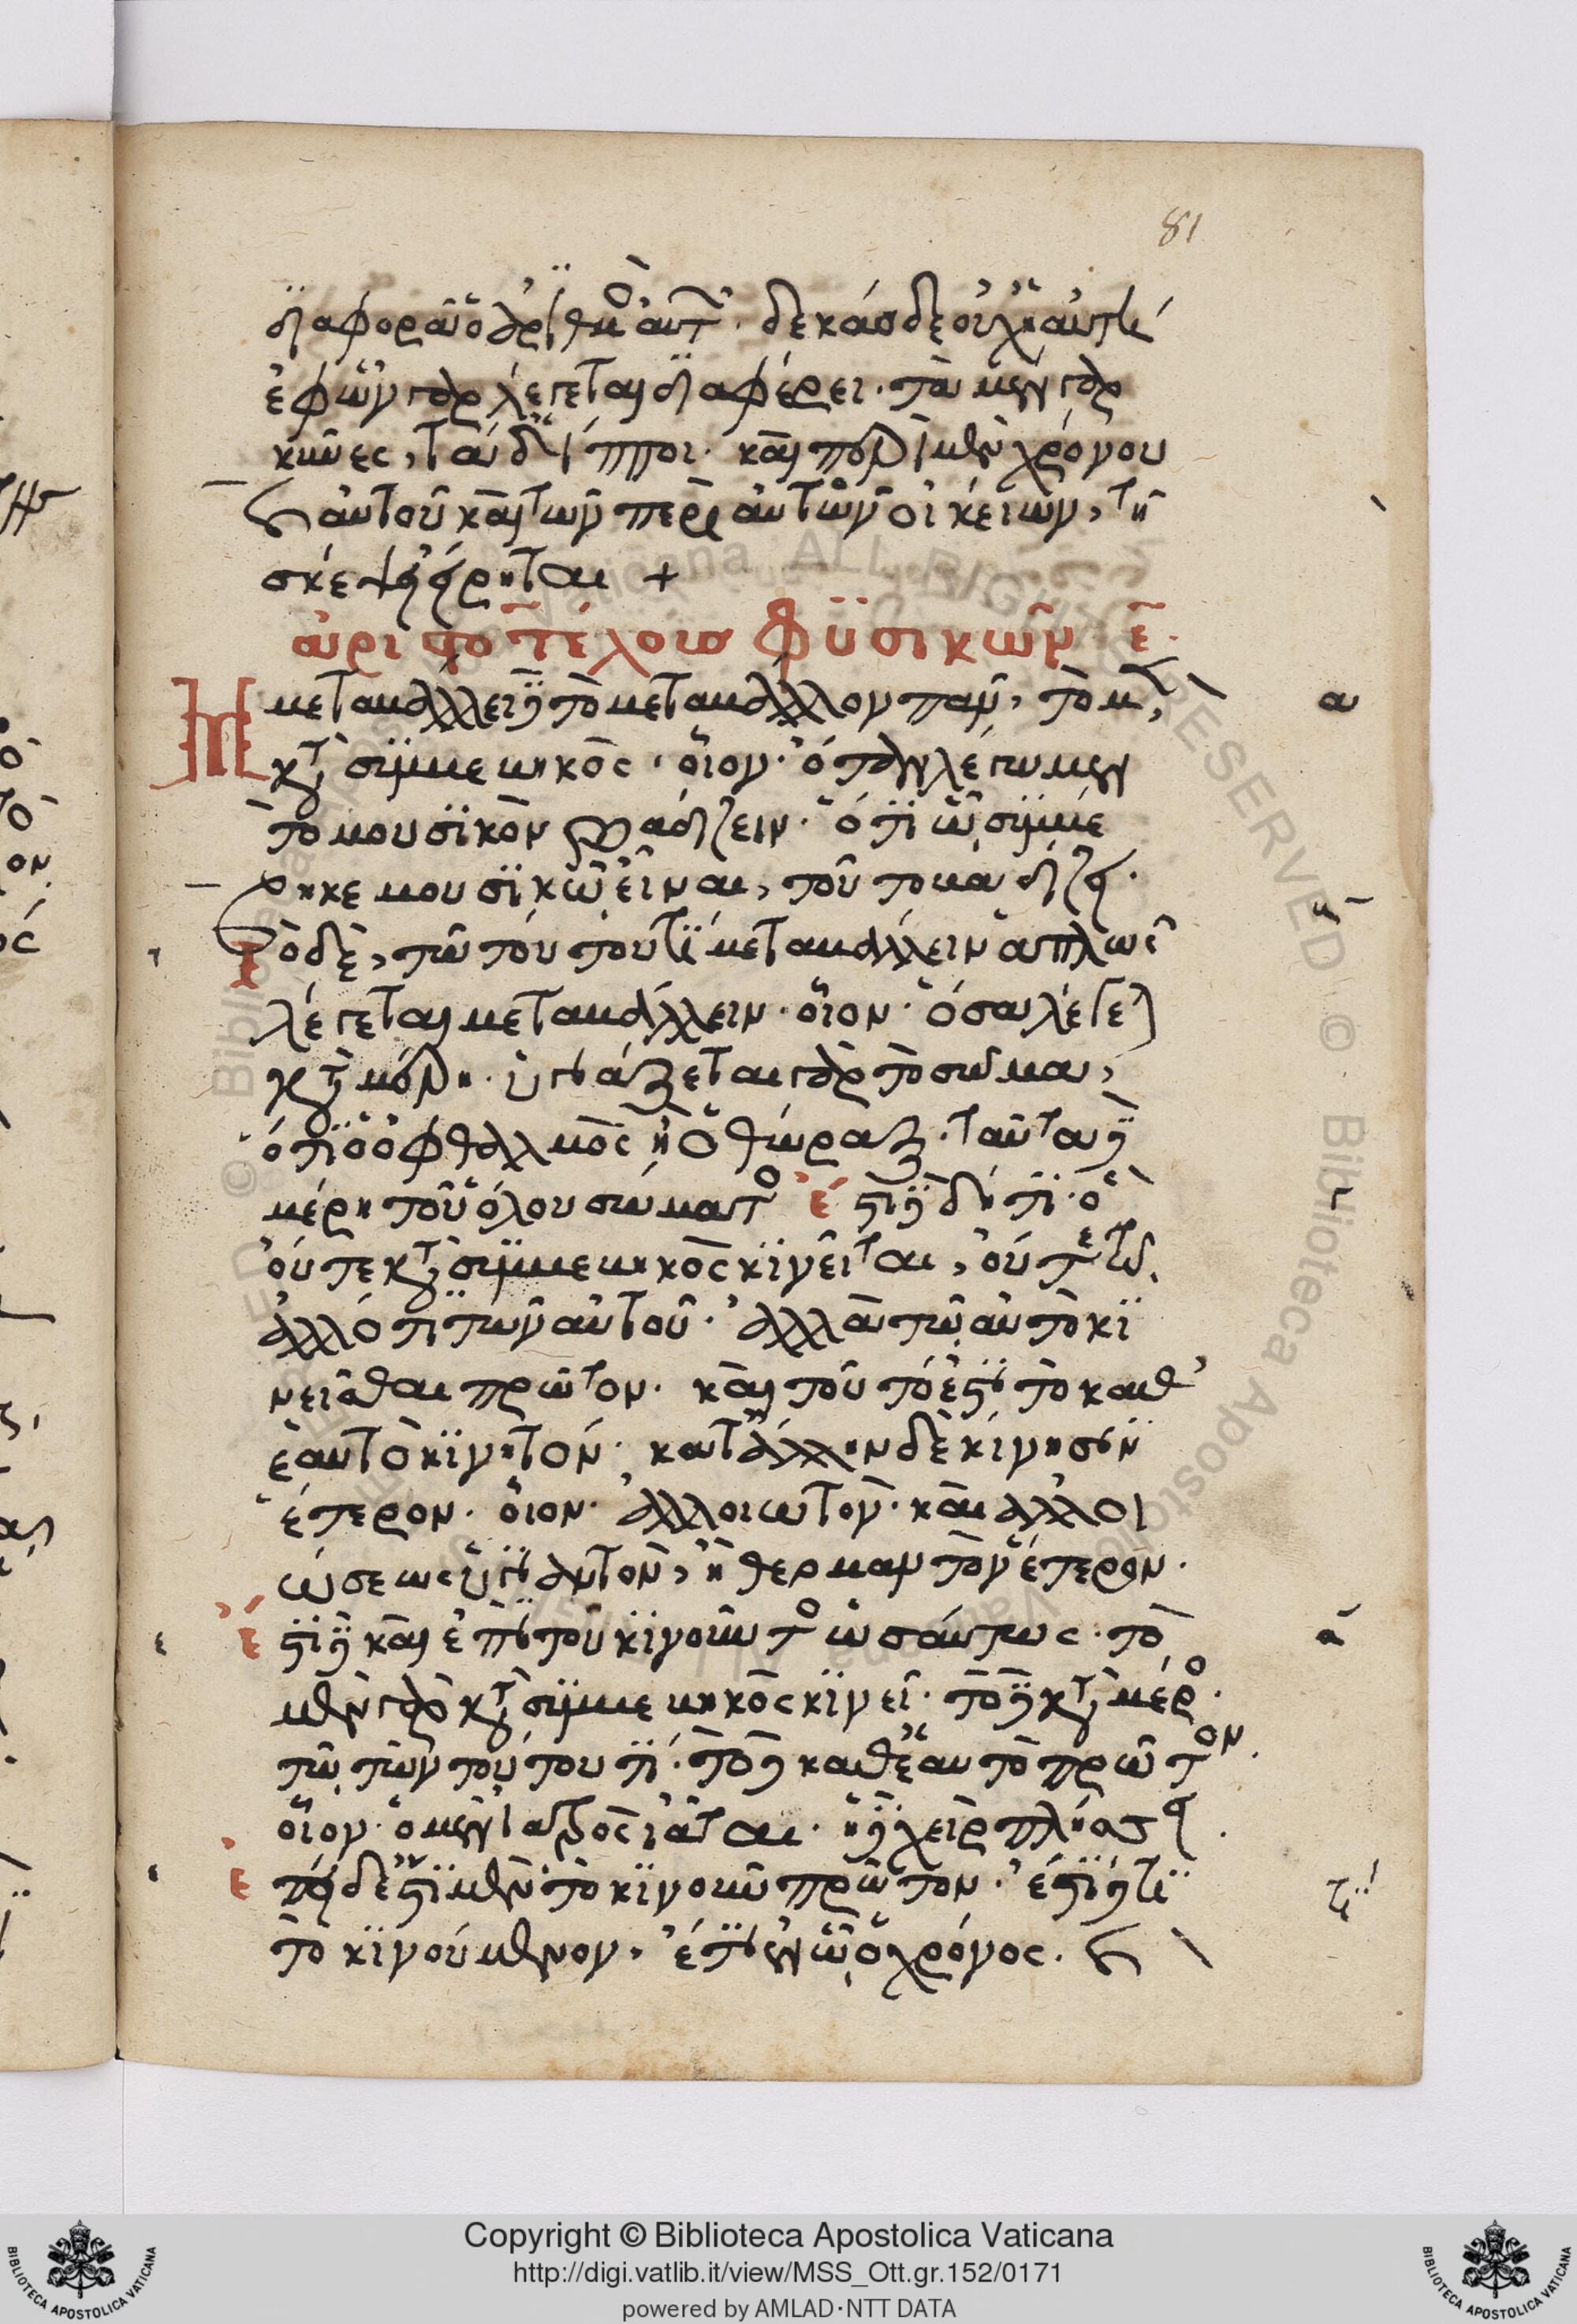 81
διαφορᾶ ὁ ἀριθμὸς αὐτός. δεκὰς δ' οὐχ ἡ αὐτή·
ἐφ' ὧν γὰρ λέγεται διαφέρει. τὰ μὲν γὰρ
κύνες, τὰ δ' ἵπποι. καὶ περὶ μὲν χρόνου
καὶ αὐτοῦ καὶ τῶν περὶ αὐτὸν οἰκείων, τῇ
σκέψει εἴρηται +
ἀριστοτέλους φυσικῶν ε̄.
Μεταβάλλει δὲ τὸ μεταβάλλον πᾶν, τὸ μὲν
κατὰ συμβεβηκός· οἷον· ὅταν λέγωμεν
τὸ μουσικὸν βαδίζειν. ὅτι ᾧ συμβέ
βηκε μουσικῷ εἶναι, τοῦτο βαδίζει.
Τὸ δὲ, τῷ τούτου τὶ μεταβάλλειν ἁπλῶς
λέγεται μεταβάλλειν. οἷον· ὅσα λέγεται
κατὰ μέρη. ὑγιάζεται γὰρ τὸ σῶμα,
ὅτι ὁ ὀφθαλμὸς ἢ ὁ θώραξ. ταῦτα δὲ
μέρη τοῦ ὅλου σώματος ἔστι δὲ δή τι. ὃ
οὔτε κατὰ συμβεβηκὸς κινεῖται, οὔτε τῷ
ἄλλό τι τῶν αὐτοῦ. ἀλλὰ τῷ αὐτὸ κι
νεῖσθαι πρῶτον. καὶ τοῦτό ἐστι τὸ καθ'
ἑαυτὸ κινητόν. κατ' ἄλλην δὲ κίνησιν
ἕτερον. οἷον· ἀλλοιωτόν. καὶ ἀλλοι
ώσεως ὑγιαντὸν, ἢ θερμαντὸν ἕτερον.
ἔστι δὲ καὶ ἐπὶ τοῦ κινοῦντος ὡσαύτως. τὸ
μὲν γὰρ κατὰ συμβεβηκὸς κινεῖ. τὸ δὲ κατὰ μέρος.
τῷ τῶν τούτου τί. τὸ δὲ καθ' ἑαυτὸ πρῶτον.
οἷον· ὁ μὲν ἰατρὸς ἰᾶται. ἡ δὲ χεὶρ πλήσσει.
ἐπεὶ δ' ἔστι μὲν τὸ κινοῦν πρῶτον. ἔστι δέ τι
τὸ κινούμενον. ἔτι ἐν ᾧ ὁ χρόνος. καὶ
Copyright © Biblioteca Apostolica Vaticana
http://digi.vatlib.it/view/MSS_Ott.gr.152/0171
powered by AMLAD·NTT DATA
BIBLIOTECA APOSTOLICA VATICANA
BIBLIOTECA APOSTOLICA VATICANA